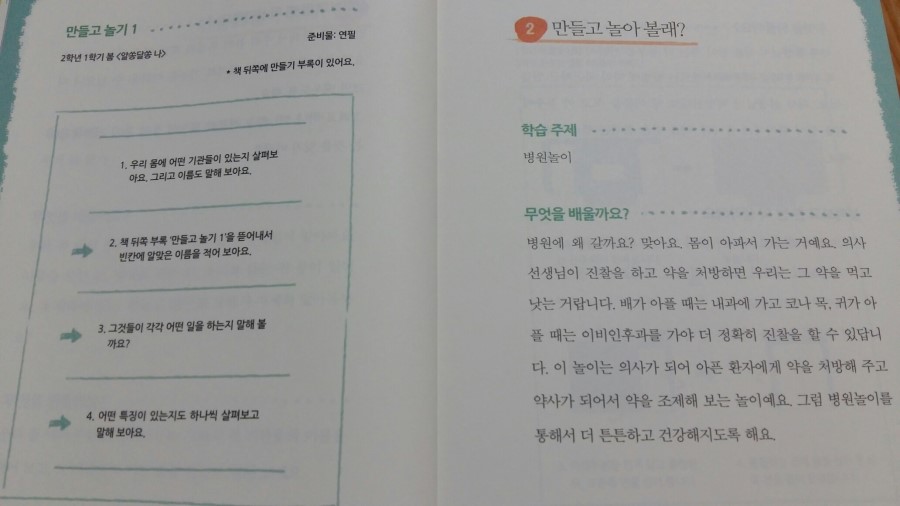 만들고 놀기 1
2학년 1학기 봄 <알쏭달쏭 나>
준비물: 연필
• 책 뒤쪽에 만들기 부록이 있어요.
1. 우리 몸에 어떤 기관들이 있는지 살펴보
아요. 그리고 이름도 말해 보아요.
2. 책 뒤쪽 부록 '만들고 놀기 1'을 뜯어내서
빈칸에 알맞은 이름을 적어 보아요.
3. 그것들이 각각 어떤 일을 하는지 말해 볼
까요?
4. 어떤 특징이 있는지도 하나씩 살펴보고
말해 보아요.
2 만들고 놀아 볼래?
학습 주제
병원놀이
무엇을 배울까요?
병원에 왜 갈까요? 맞아요. 몸이 아파서 가는 거예요. 의사
선생님이 진찰을 하고 약을 처방하면 우리는 그 약을 먹고
낫는 거랍니다. 배가 아플 때는 내과에 가고 코나 목, 귀가 아
플 때는 이비인후과를 가야 더 정확히 진찰을 할 수 있답니
다. 이 놀이는 의사가 되어 아픈 환자에게 약을 처방해 주고
약사가 되어서 약을 조제해 보는 놀이예요. 그럼 병원놀이를
통해서 더 튼튼하고 건강해지도록 해요.